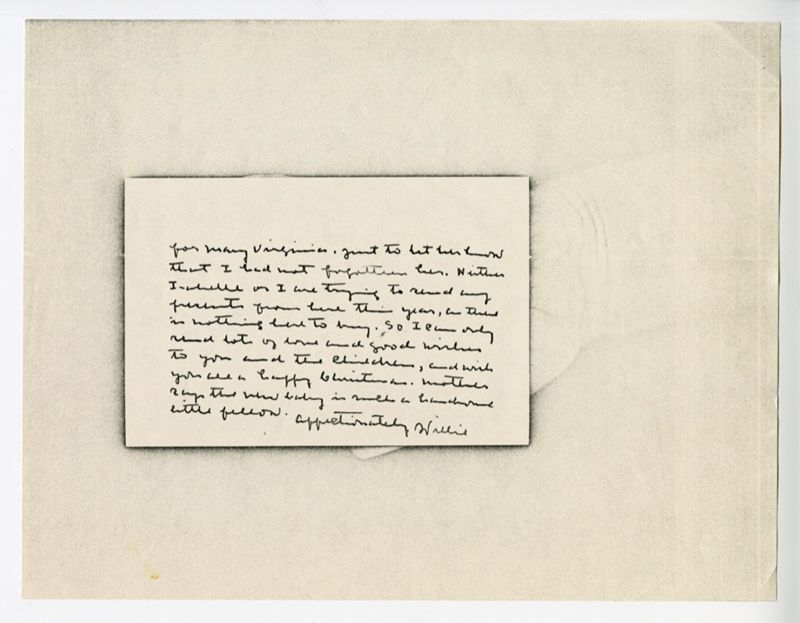 for Mary Virginia. Just to let her know
that I had not forgotten her. Neither
Isabelle or I are trying to send any
presents from here this year, as there
is nothing here to buy. So I can only
send lots of love and good wishes
to you and the children, and wish
you all a happy Christmas. Mother
says the new baby is such a handsome
little fellow. Affectionately Willie